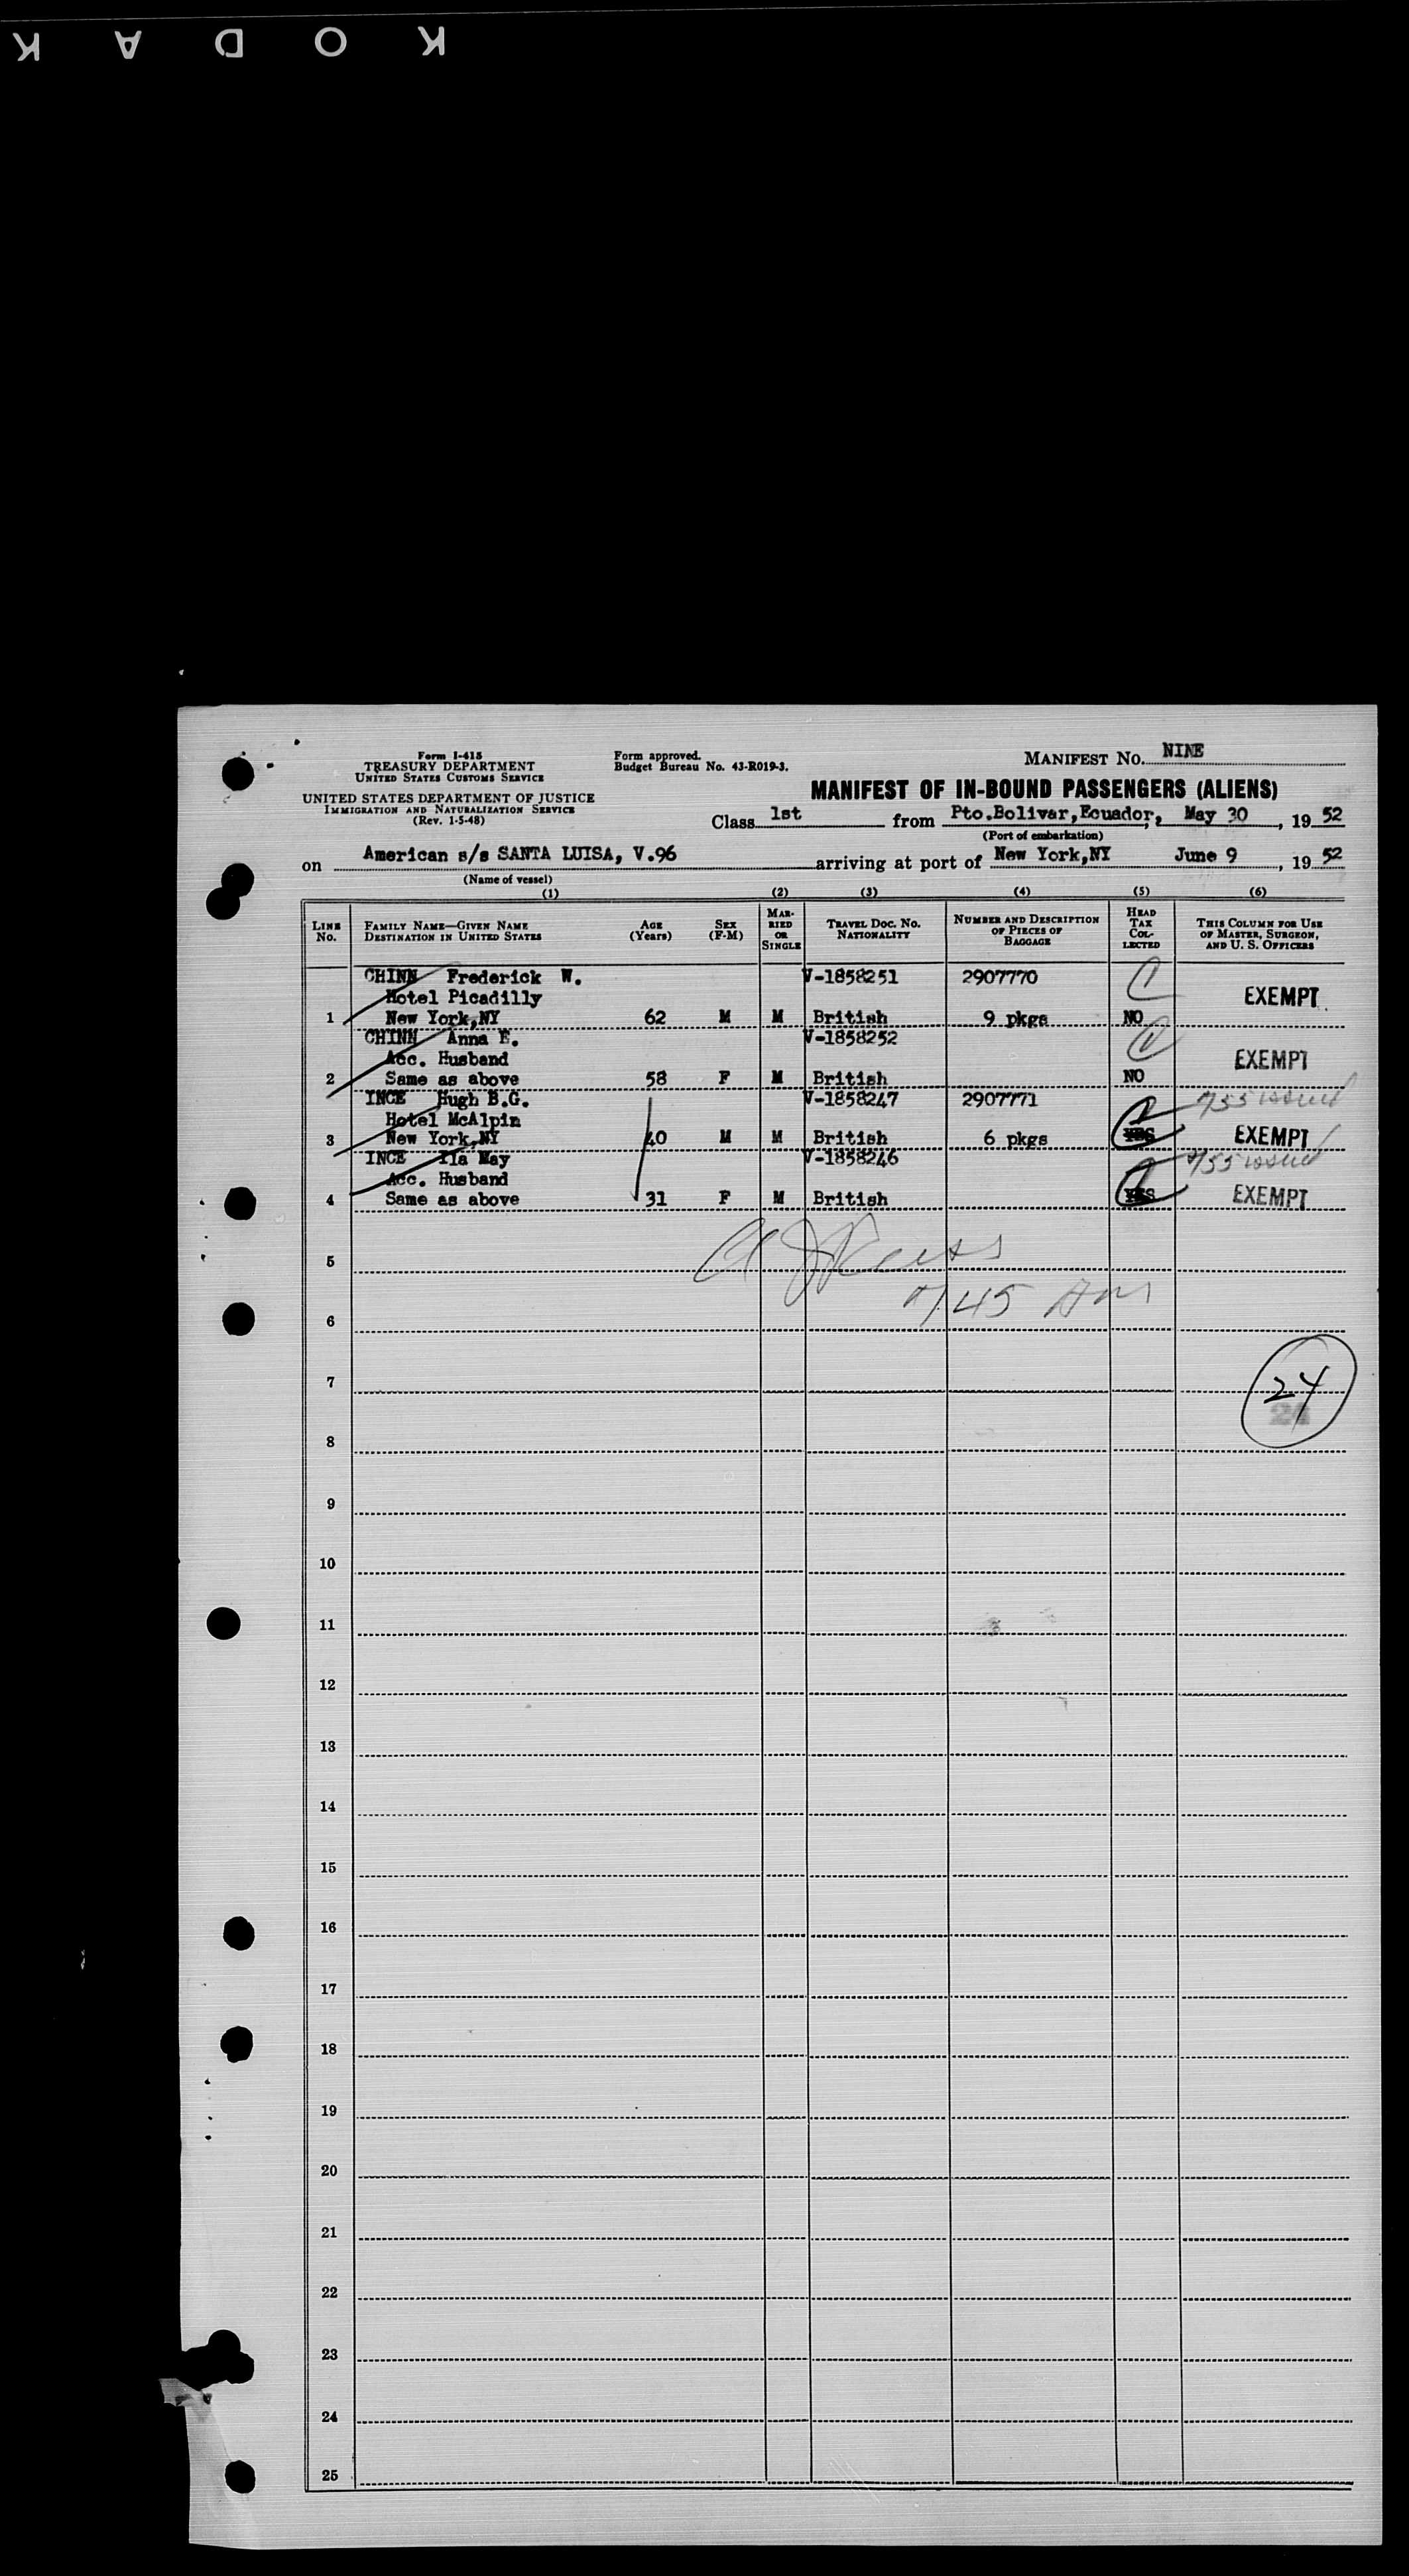 KODAK
Form I-415
TREASURY DEPARTMENT
UNITED STATES CUSTOMS SERVICE
UNITED STATES DEPARTMENT OF JUSTICE
IMMIGRATION AND NATURALIZATION SERVICE
(Rev. 1-5-48)
Form approved.
Budget Bureau No. 43-R019-3.
MANIFEST NO. NINE
MANIFEST OF IN-BOUND PASSENGERS (ALIENS)
Class 1st from Pto.Bolivar,Ecuador, May 30, 19 52
(Port of embarkation)
on American s/s SANTA LUISA, V.96 arriving at port of New York,NY June 9, 19 52
(Name of vessel)
(1) (2) (3) (4) (5) (6)
LINE No. FAMILY NAME—GIVEN NAME DESTINATION IN UNITED STATES AGE (Years) SEX (F-M) MARRIED OR SINGLE TRAVEL DOC. NO. NATIONALITY NUMBER AND DESCRIPTION OF PIECES OF BAGGAGE HEAD TAX COLLECTED THIS COLUMN FOR USE OF MASTER, SURGEON, AND U. S. OFFICERS
CHINN Frederick W. V-1858251 2907770
Hotel Picadilly EXEMPT
1 New York,NY 62 M M British 9 pkgs NO
CHINN Anna E. V-1858252
Acc. Husband EXEMPT
2 Same as above 58 F M British NO
INCE Hugh B.G. V-1858247 2907771 755 issued
Hotel McAlpin
3 New York,NY 40 M M British 6 pkgs YES EXEMPT
INCE Ila May V-1858246 755 issued
Acc. Husband
4 Same as above 31 F M British YES EXEMPT
5
745 AM
6
7 24
24
8
9
10
11
12
13
14
15
16
17
18
19
20
21
22
23
24
25